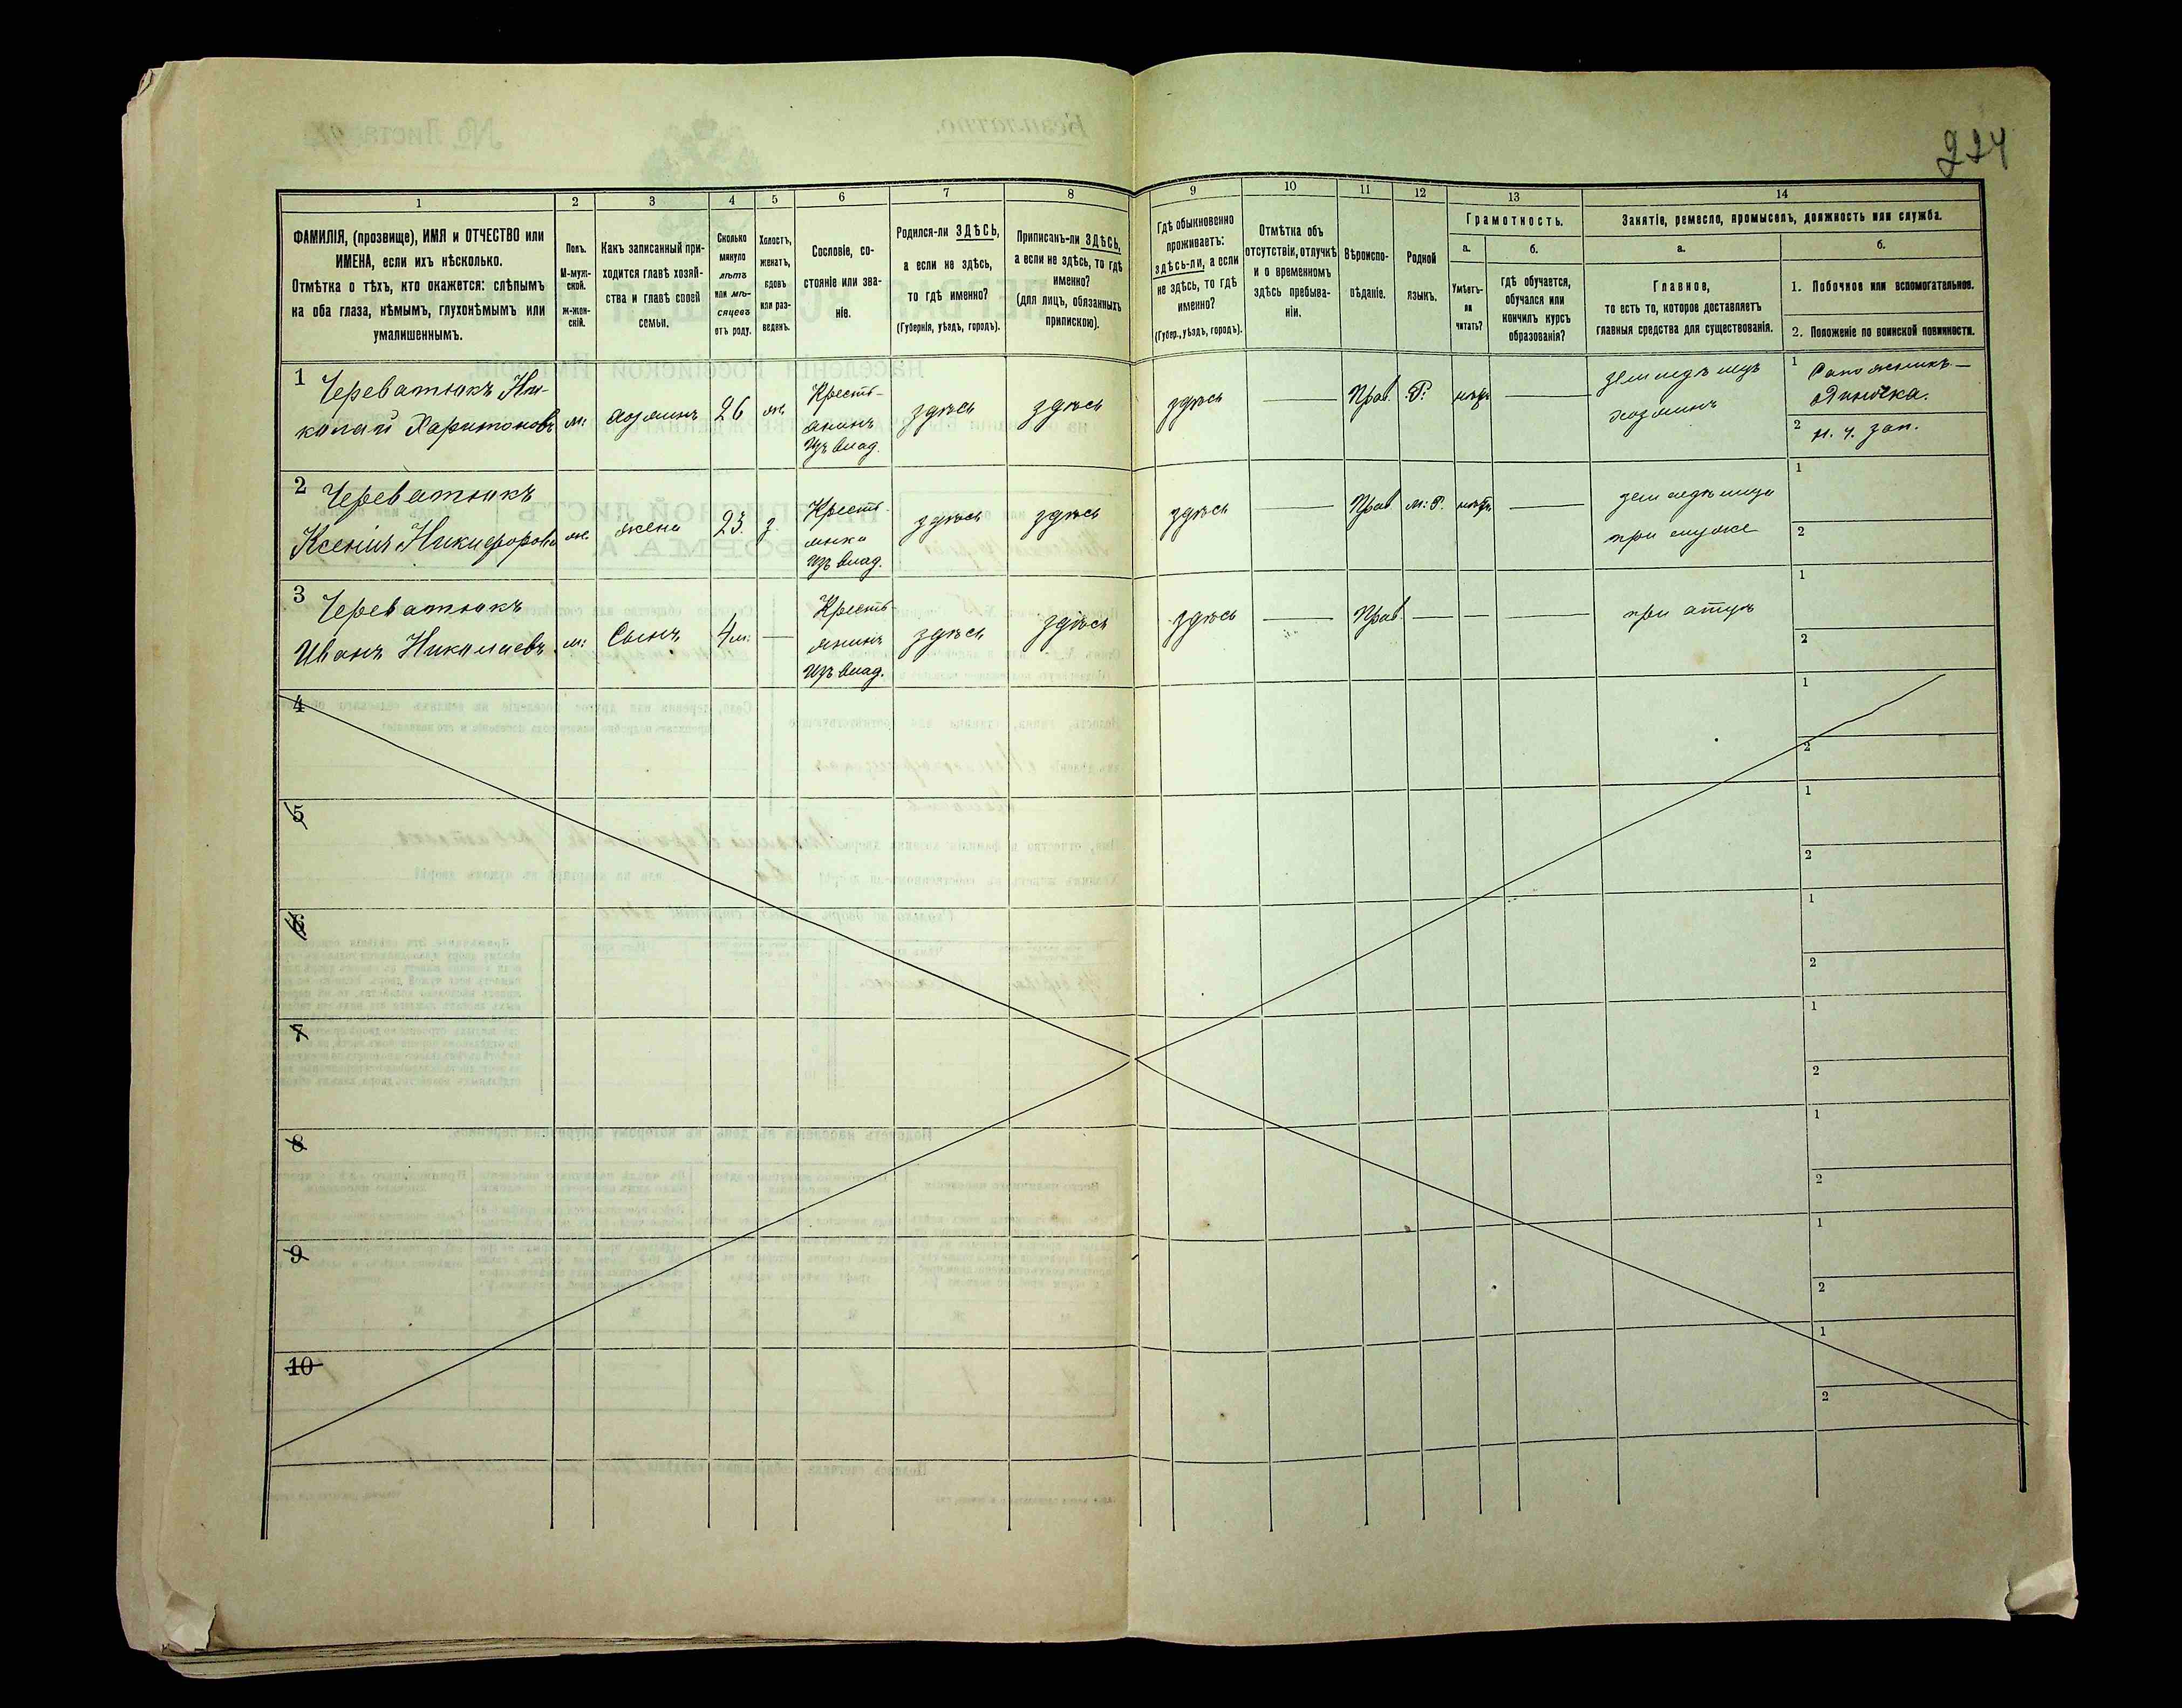 224
1
2
3
4
5
6
7
8
9
10
11
12
13
14
ФАМИЛІЯ, (прозвище), ИМЯ и ОТЧЕСТВО или
ИМЕНА, если ихъ нѣсколько.
Отмѣтка о тѣхъ, кто окажется: слѣпымъ
на оба глаза, нѣмымъ, глухонѣмымъ или
умалишеннымъ.
Полъ.
М-муж-
ской.
ж-жен-
скій.
Какъ записанный при-
ходится главѣ хозяй-
ства и главѣ своей
семьи.
Сколько
минуло
лѣтъ
или мѣ-
сяцевъ
отъ роду.
Холостъ,
женатъ,
вдовъ
или раз-
веденъ.
Сословіе, со-
стояніе или зва-
ніе.
Родился-ли ЗДѢСЬ,
а если не здѣсь,
то гдѣ именно?
(Губернія, уѣздъ, городъ).
Приписанъ-ли ЗДѢСЬ,
а если не здѣсь, то гдѣ
именно?
(для лицъ, обязанныхъ
припискою).
Гдѣ обыкновенно
проживаетъ:
здѣсь-ли, а если
не здѣсь, то гдѣ
именно?
(Губер., уѣздъ, городъ).
Отмѣтка объ
отсутствіи, отлучкѣ
и о временномъ
здѣсь пребыва-
ніи.
Вѣроиспо-
вѣданіе.
Родной
языкъ.
Грамотность.
а.
Умѣетъ-
ли
читать?
б.
гдѣ обучается,
обучался или
кончилъ курсъ
образованія?
Занятіе, ремесло, промыселъ, должность или служба.
а.
Главное,
то есть то, которое доставляетъ
главныя средства для существованія.
б.
1. Побочное или вспомогательное.
2. Положеніе по воинской повинности.
1 Череватюкъ Ни-
колай Харитоновъ
м:
хозяинъ
26
ж.
Кресть-
янинъ
изъ влад.
здѣсь
здѣсь
здѣсь
Прав.
Р.
нѣтъ
хозяинъ
1 Сапожникъ —
одиночка.
2 н. ч. зап.
2 Череватюкъ
Ксенія Никифорова
ж.
жена
23.
з.
Кресть-
янка
изъ влад.
здѣсь
здѣсь
здѣсь
Прав
м: Р.
нѣтъ
при мужѣ
1
2
3 Череватюкъ
Иванъ Николаевъ.
м:
Сынъ
4 м:
Кресть-
янинъ
изъ влад.
здѣсь
здѣсь
здѣсь
Прав.
при отцѣ
1
2
4
1
2
5
1
2
6
1
2
7
1
2
8
1
2
9
1
2
10
1
2